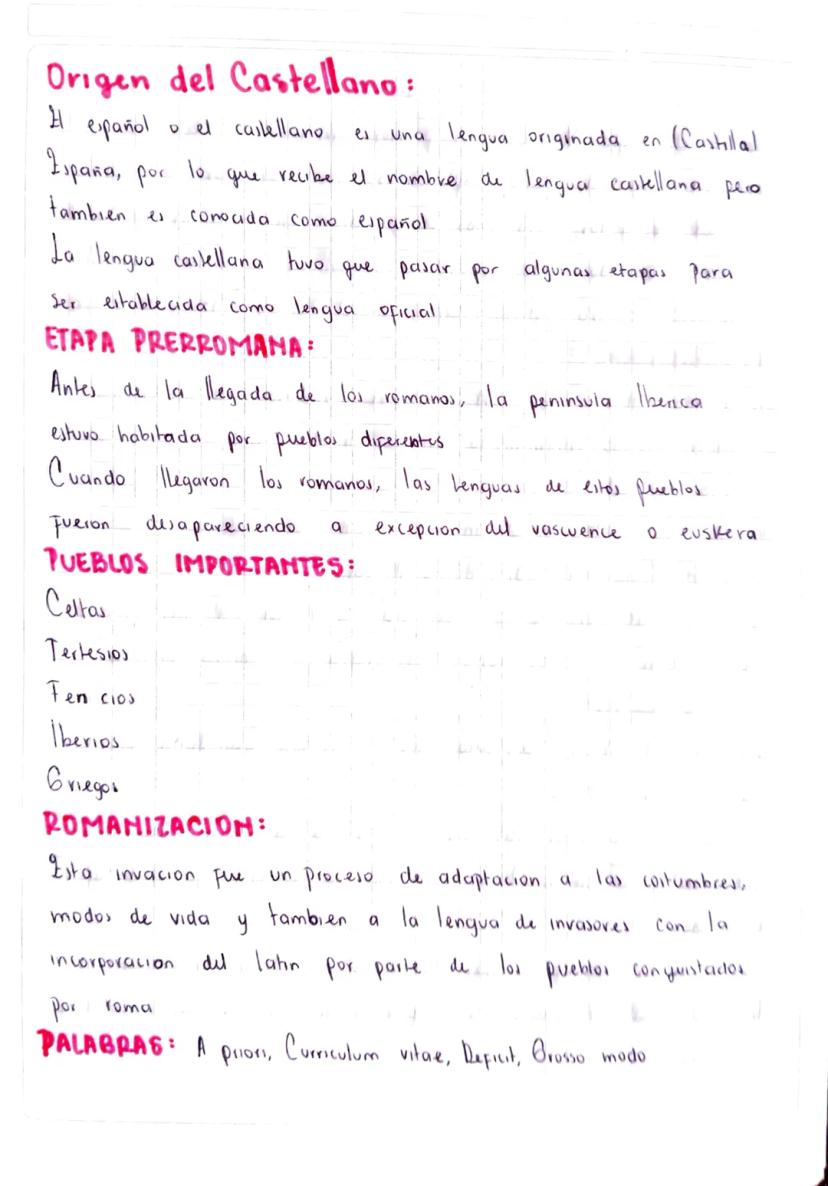 Origen del Castellano:
El español o el castellano es una lengua originada en (Castilla)
España, por lo que recibe el nombre de lengua castellana pero
tambien es conocida como español
La lengua castellana tuvo que pasar por algunas etapas para
ser establecida como lengua oficial
ETAPA PRERROMANA:
Antes de la llegada de los romanos, la peninsula Iberica
estuvo habitada por pueblos diferentes
Cuando llegaron los romanos, las lenguas de estos pueblos
fueron desapareciendo a excepcion del vascuence o euskera
PUEBLOS IMPORTANTES:
Celtas
Tertesios
Fen cios
Iberios
Griegos
ROMANIZACION:
Esta invacion fue un proceso de adaptacion a las costumbres,
modos de vida y tambien a la lengua de invasores con la
incorporacion del latin por parte de los pueblos conquistados
por roma
PALABRAS: A priori, Curriculum vitae, Deficit, Grosso modo